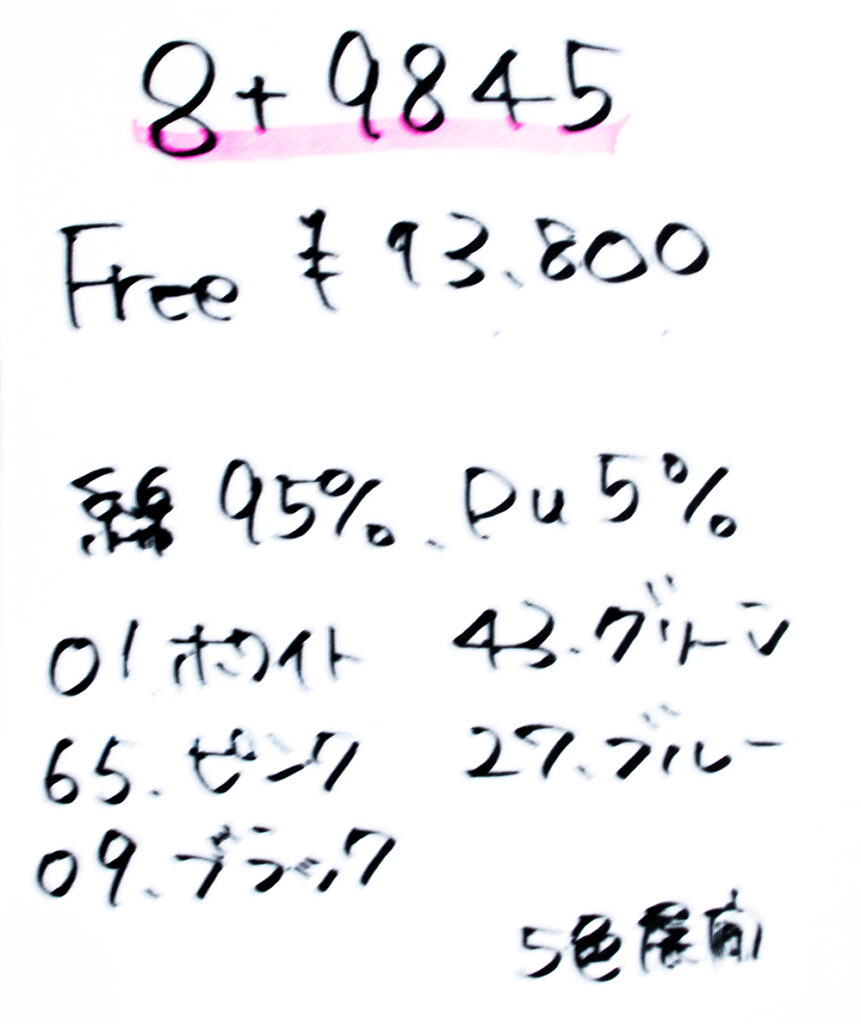 8+9845
Free ¥93.800
綿 95%、Pu 5%
01 ホワイト 43.グリーン
65.ピンク 27.ブルー
09.ブラック
5色展開